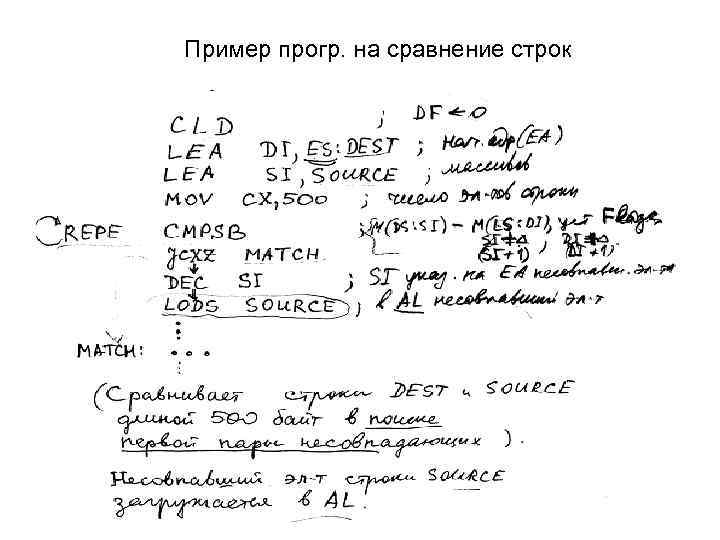 Пример прогр. на сравнение строк
CLD ; DF ← 0
LEA DI, ES:DEST ; Нач. адр (EA)
LEA SI, SOURCE ; массивов
MOV CX, 500 ; число эл-тов строки
REPE CMPSB ; M(DS:SI) – M(ES:DI), уст Flags,
(SI+1) (DI+1)
JCXZ MATCH
DEC SI ; SI указ. на EA несовпавш. эл-та
LODS SOURCE ; в AL несовпавший эл-т
MATCH: . . .
(Сравнивает строки DEST и SOURCE
длиной 500 байт в поиске
первой пары несовпадающих).
Несовпавший эл-т строки SOURCE
загружается в AL.